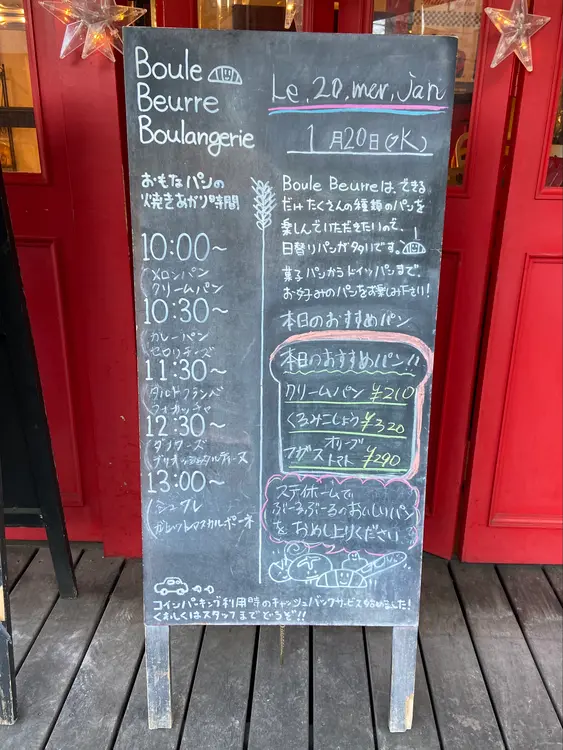 Boule
Beurre
Boulangerie
Le.20.mer.Jan
1月20日(水)
おもなパンの
焼きあがり時間
10:00~
メロンパン
クリームパン
10:30~
カレーパン
セロリチーズ
11:30~
タルトフランベ
フォカッチャ
12:30~
13:00~
シュクレ
ガレットマスカルポーネ
Boule Beurreは、できる
だけたくさんの種類のパンを
楽しんでいただきたいので、
日替りパンが多いです。
菓子パンからドイツパンまで、
お好みのパンをお楽しみ下さい!
本日のおすすめパン
本日のおすすめパン!!
クリームパン ¥210
くるみこしょう ¥320
フガス オリーブ
トマト ¥290
ステイホームで
ぶーるぶーるのおいしいパン
をおめし上りください
コインパーキング利用時のキャッシュバックサービス始めました!
くわしくはスタッフまでどうぞ!!